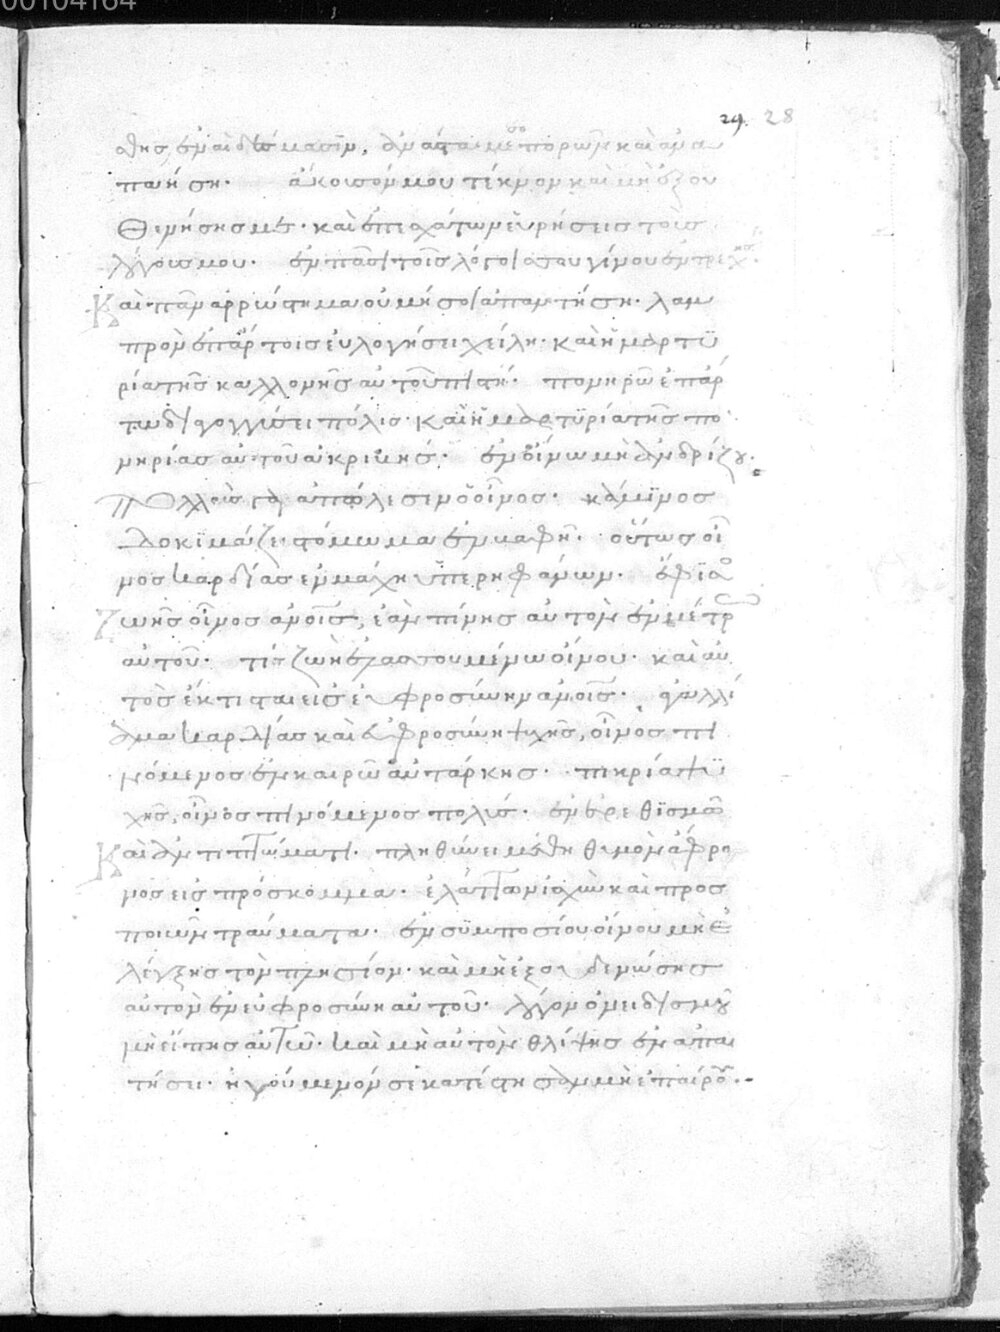 00104164
29. 28
σθῆς ἐν αἰδέσμασιν, ἀνάστα μεσοπορῶν καὶ ἀνα
παύσῃ. ἄκουσόν μου τέκνον καὶ μὴ ἐξου
θενήσῃς με. καὶ ἐπ' ἐσχάτων εὑρήσεις τοὺς
λόγους μου. ἐν πᾶσι τοῖς λόγοις σου γίνου ἐντρεχής.
Καὶ πᾶν ἀρρώστημα οὐ μή σοι ἀπαντήσῃ. λαμ
πρὸν ἐπ' ἄρτοις εὐλογήσει χείλη. καὶ ἡ μαρτυ
ρία τῆς καλλονῆς αὐτοῦ πιστή. πονηρῶ ἐπ' ἄρ
τω διαγογγύσει πόλις. καὶ ἡ μαρτυρία τῆς πο
νηρίας αὐτοῦ ἀκριβής. ἐν οἴνω μὴ ἀνδρίζου.
Πολλοὺς γὰρ ἀπώλεσεν ὁ οἶνος. κάμινος
δοκιμάζει στόμωμα ἐν βαφῇ. οὕτως οἶ
νος καρδίας ἐν μάχη ὑπερηφάνων. ἔφισον
ζωῆς οἶνος ἀνοις, ἐὰν πίνῃς αὐτὸν ἐν μέτρω
αὐτοῦ. τίς ζωὴ ἐλασσουμένω οἴνου. καὶ αὐ
τὸς ἔκτισται εἰς εὐφροσύνην ἀνοις. ἀγαλλί
αμα καρδίας καὶ εὐφροσύνη ψχῆς, οἶνος πι
νόμενος ἐν καιρῶ αὐτάρκης. πικρία ψυ
χῆς, οἶνος πινόμενος πολύς. ἐν ἐρεθισμῶ
Καὶ ἀντιπτώματι. πληθύνει μέθη θυμὸν ἄφρο
νος εἰς πρόσκομμα. ἐλαττῶν ἰσχὺν καὶ προσ
ποιῶν τραύματα. ἐν συμποσίου οἴνου μὴ ἐ
λέγξῃς τὸν πλησίον. καὶ μὴ ἐξουδενώσῃς
αὐτὸν ἐν εὐφροσύνη αὐτοῦ. λόγον ὀνειδισμοῦ
μὴ εἴπῃς αὐτῶ. καὶ μὴ αὐτὸν θλίψῃς ἐν ἀπαι
τήσει. ἡγούμενόν σε κατέστησαν μὴ ἐπαίρου.